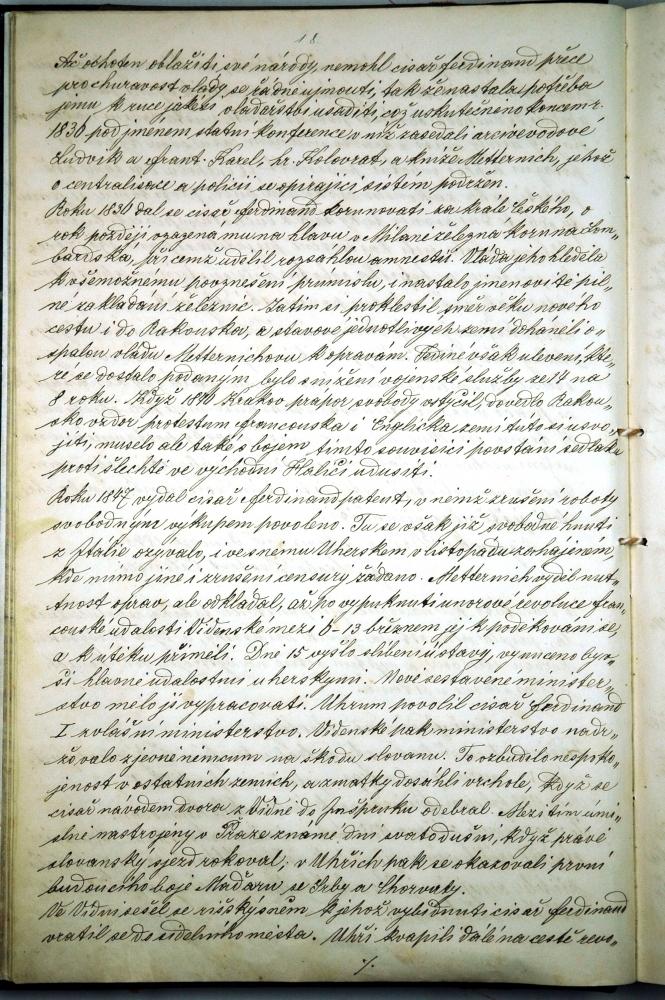 18
Ač ochoten oblažiti své národy, nemohl císař Ferdinand přece
pro churavost vlády se řádně ujmouti, tak že nastala potřeba
jemu k ruce jakési vladařství usaditi, což uskutečněno koncem r.
1836 pod jménem státní konference v níž zasedali arcivévodové
Ludvík a Frant. Karel, hr. Kolovrat, a kníže Metternich, jehož
o centralisace a policii se opírající sistém podržen.
Roku 1836 dal se císař Ferdinand korunovati za krále českého, o
rok později vsazena mu na hlavu v Miláně železná koruna Lom„
bardská, při čemž udělil rozsáhlou amnestii. Vláda jeho hleděla
k všemožnému povznešení průmislu, i nastalo jmenovitě pil„
né zakládání železnic. Zatím si proklestil směr věku nového
cestu i do Rakouska, a stavové jednotlivých zemí doháněli o„
spalou vládu Metternichovu k opravám. Jediné však ulevení, kte„
ré se dostalo podaným bylo snížení vojenské služby ze 14 na
8 roků. Když 1846 Krakov prapor svobody vztýčil, dovedlo Rakou„
sko vzdor protestům Francouska i Englicka zemi tuto si osvo„
jiti, muselo ale také s bojem tímto souvisící povstání sedláků
proti šlechtě ve východní Haliči udusiti.
Roku 1847 vydal císař Ferdinand patent, v němž zrušení roboty
svobodným výkupem povoleno. Tu se však již svobodné hnutí
z Itálie ozývalo, i ve sněmu Uherském v listopadu zahájeném,
kde mimo jiné i zrušení censury žádáno. Metternich viděl nut„
tnost oprav, ale odkládal, až po vypuknutí únorové revoluce fran„
couské události Vídenské mezi 6-13 březnem jej k poděkování se,
a k útěku přiměli. Dne 15 vyšlo slíbení ústavy, vynuceno byv„
ší hlavně událostmi uherskými. Nově sestavené minister„
stvo mělo ji vypracovati. Uhrům povolil císař Ferdinand
I zvláštní ministerstvo. Vídenské pak ministerstvo nadr„
žovalo zjevně němcům na škodu slovanů. To vzbudilo nespoko„
jenost v ostatních zemích, a zmatky dosáhli vrchole, když se
císař návodem dvora z Vídně do Inšpruku odebral. Mezitím úmi„
slně nastrojeny v Praze známé dni svatodušní, když právě
slovanský sjezd rokoval; v Uhřích pak se okazovali první
budoucího boje Maďarů se Srby a Chorvaty.
Ve Vídni sešel se říšský sněm k jehož vybídnutí císař Ferdinand
vrátil se do sídelního města. Uhři kvapili dále na cestě revo„
./.